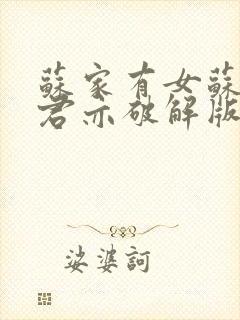 蘇家有女蘇
君亦破解版
娑婆訶